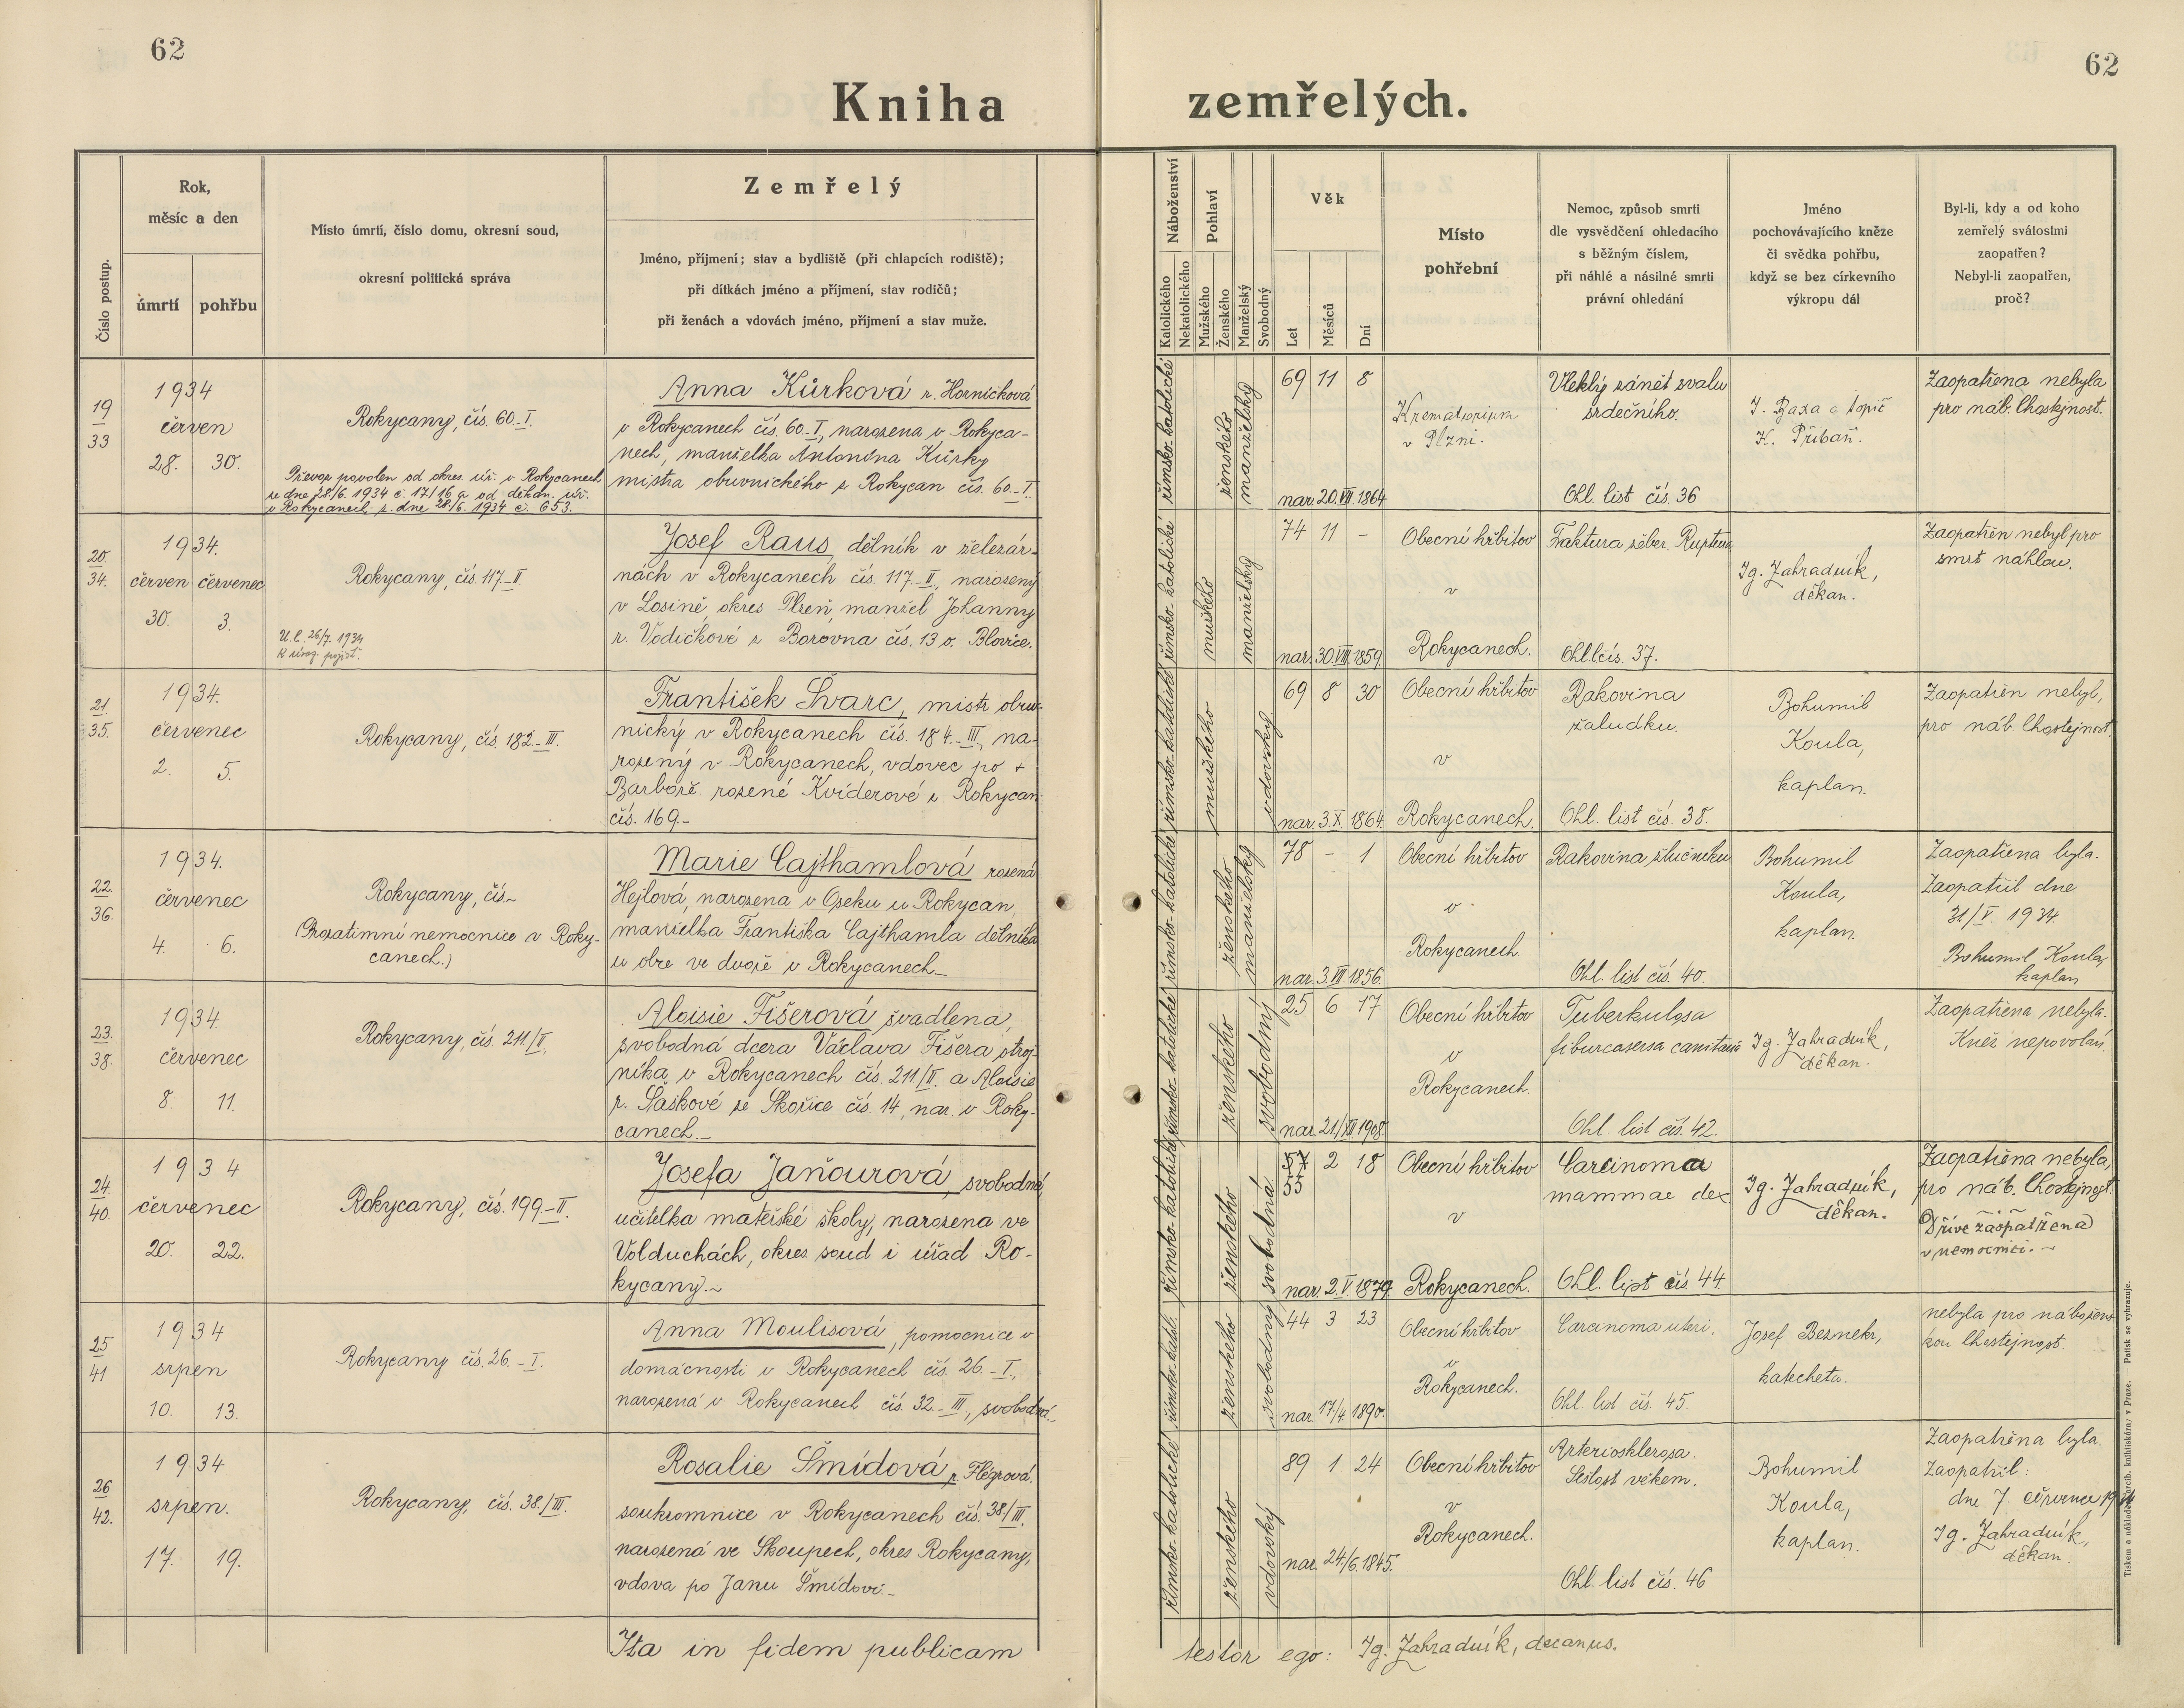 62
Kniha
Číslo postup.
Rok,
měsíc a den
úmrtí
pohřbu
Místo úmrtí, číslo domu, okresní soud,
okresní politická správa
Zemřelý
Jméno, příjmení; stav a bydliště (při chlapcích rodiště);
při dítkách jméno a příjmení, stav rodičů;
při ženách a vdovách jméno, příjmení a stav muže.
19
33
1934
červen
28. 30.
Rokycany, čís. 60_I.
Převoz povolen od okres. úř. v Rokycanech
ze dne 28/6. 1934 č. 17/16 a od děkan. úř.
v Rokycanech z. dne 28/6. 1934 č. 653.
Anna Kůrková r. Horníčková
v Rokycanech čís. 60_I., narozena v Rokyca-
nech, manželka Antonína Kůrky
mistra obuvnického z Rokycan čís. 60_I.
20.
34.
1934.
červen červenec
30. 3.
Rokycany, čís. 117_II.
U.l. 26/7. 1934
Josef Raus, dělník v železár-
nách v Rokycanech čís. 117_II., narozený
v Losině, okres Plzeň, manžel Johanny
r. Vodičkové z Borovna čís. 13 o. Blovice.
21.
35.
1934.
červenec
2. 5.
Rokycany, čís. 182_III.
František Švarc, mistr obuv-
nický v Rokycanech čís. 184_III., na-
rozený v Rokycanech, vdovec po +
Barboře rozené Kviderové z Rokycan
čís. 169.-
22.
36.
1934.
červenec
4. 6.
Rokycany, čís.~
(Prozatimní nemocnice v Roky-
canech.)
Marie Cajthamlová rozená
Hejlová, narozena v Oseku u Rokycan,
manželka Františka Cajthamla dělníka
u obre ve dvoře v Rokycanech_
23.
38.
1934.
červenec
8. 11.
Rokycany, čís. 211/II.
Aloisie Fišerová švadlena,
svobodná dcera Václava Fišera stroj-
níka v Rokycanech čís. 211/II. a Aloisie
r. Šaškové ze Skořice čís. 14, nar. v Roky-
canech._
24.
40.
1934
červenec
20. 22.
Rokycany, čís. 199_II.
Josefa Jaňourová, svobodná,
učitelka mateřské školy, narozena ve
Volduchách, okres soud i úřad Ro-
kycany.~
25
41
1934
srpen
10. 13.
Rokycany čís. 26._I.
Anna Moulisová, pomocnice v
domácnosti v Rokycanech čís. 26._I.,
narozená v Rokycanech čís. 32._III., svobodná._
26
42.
1934
srpen.
17. 19.
Rokycany, čís. 38./III.
Rosalie Šmídová, r. Flégrová.
soukromnice v Rokycanech čís. 38/III.
narozená ve Skoupech, okres Rokycany,
vdova po Janu Šmídovi._
Ita in fidem publicam
62
zemřelých.
Náboženství
Katolického
Nekatolického
Pohlaví
Mužského
Ženského
Manželský
Svobodný
Věk
Let
Měsíců
Dní
Místo
pohřební
Nemoc, způsob smrti
dle vysvědčení ohledacího
s běžným číslem,
při náhlé a násilné smrti
právní ohledání
Jméno
pochovávajícího kněze
či svědka pohřbu,
když se bez církevního
výkropu dál
Byl-li, kdy a od koho
zemřelý svátostmi
zaopatřen?
Nebyl-li zaopatřen,
proč?
římsko-katolické
ženského
manželský
69 11 8
nar. 20.VII.1864
Krematorium
v Plzni.
Vleklý zánět svalu
srdečního.
Ohl. list čís. 36
J. Baxa a topič
K. Přibáň.
Zaopatřena nebyla
pro náb. lhostejnost.
římsko-katolické
mužského
manželský
74 11 -
nar. 30.VII.1859.
Obecní hřbitov
v
Rokycanech.
Fraktura žeber. Ruptura
Ohl.l čís. 37.
Ig. Zahradník,
děkan.
Zaopatřen nebyl pro
smrt náhlou.
římsko-katolické
mužského
vdovský
69 8 30
nar. 3.X.1864.
Obecní hřbitov
v
Rokycanech.
Rakovina
žaludku.
Ohl. list čís. 38.
Bohumil
Koula,
kaplan.
Zaopatřen nebyl,
pro náb. lhostejnost.
římsko-katolické
ženského
manželský
78 - 1
nar. 3.VII.1856.
Obecní hřbitov
v
Rokycanech
Rakovina žlučníku
Ohl. list čís. 40.
Bohumil
Koula,
kaplan.
Zaopatřena byla.
Zaopatřil dne
31/V. 1934.
Bohumil Koula,
kaplan
římsko-katolické
ženského
svobodný
25 6 17
nar. 21/XII 1908.
Obecní hřbitov
v
Rokycanech.
Tuberkulosa
Ohl. list čís. 42.
Ig. Zahradník,
děkan.
Zaopatřena nebyla.
Kněz nepovolán.
římsko-katolické
ženského
svobodná
57 2 18
55
nar. 2.V.1879.
Obecní hřbitov
v
Rokycanech.
Carcinoma
mammae dex.
Ohl. list čís. 44.
Ig. Zahradník,
děkan.
Zaopatřena nebyla,
pro náb. lhostejnost.
(Dříve zaopatřena)
v nemocnici.~
římsko-katol.
ženského
svobodný
44 3 23
nar. 17/4 1890.
Obecní hřbitov
v
Rokycanech.
Carcinoma uteri.
Ohl. list čís. 45.
Josef Beznekr,
katecheta.
nebyla pro nábožens-
kou lhostejnost.
římsko-katolické
ženského
vdovský
89 1 24
nar. 24/6.1845.
Obecní hřbitov
v
Rokycanech.
Arteriosklerosa.
Sešlost věkem.
Ohl. list čís. 46
Bohumil
Koula,
kaplan.
Zaopatřena byla.
Zaopatřil:
dne 7. července 1934
Ig. Zahradník,
děkan.
testor ego: Ig. Zahradník, decanus.
Tiskem a nákladem arcib. knihtiskárny v Praze. — Patisk se vyhrazuje.